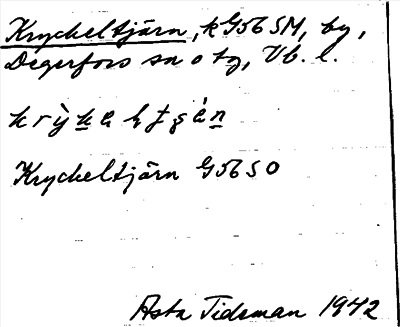 Kryckeltjärn, kG56SM, by,
Degerfors sn o tg, Vb. l.
Kryckeltjärn G56SO
Asta Tideman 1942